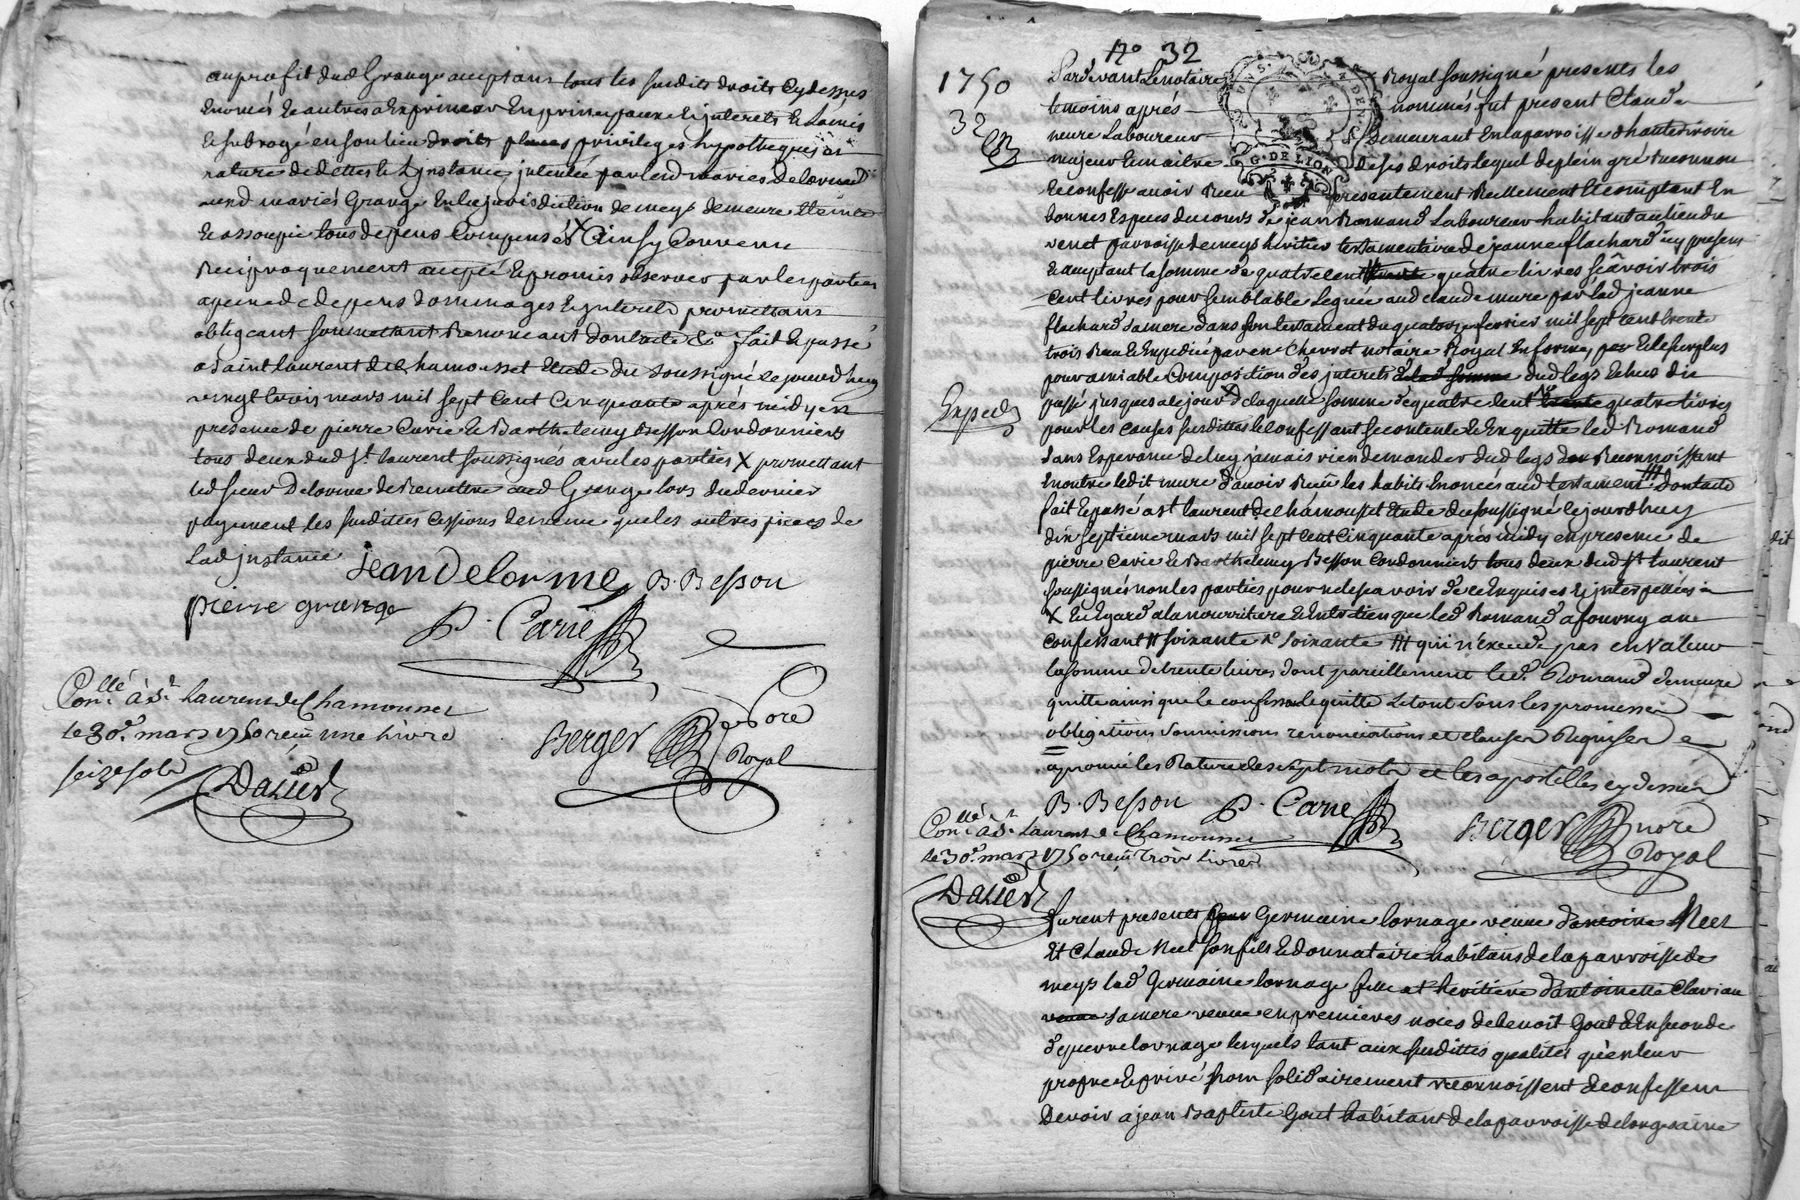 au profit dud Grange acceptans tous les susdits droits cy dessus
enoncés et autres a exprimer en principaux et interets et la mis
et subrogé en son lieu droits places privileges hypotheques et
nature de dettes et l'instance intentée par led mariés Delorme
aud mariés Grange en la jurisdiction de meys demeure éteinte
et assoupie tous depens compensés X Ainsy convenu
reciproquement accepté et promis observer par les parties
a peine de depens dommages et interets promettans
obligeant soumettant renoncant dont acte &a fait et passé
a Saint laurent de Chamousset etude du soussigné le jourdhuy
vingt trois mars mil sept cent cinquante aprés midy en
presence de pierre Carié et Barthelemy Besson Cordonniers
tous deux dud St. laurent soussignés avec les parties X promettant
led sieur Delorme de remettre aud Grange lors du dernier
payement les susdittes cessions de meme que les autres pieces de
lad instance
Jean Delorme B. Besson
pierre grange
P. Carié
Conllé à St. Laurent de Chamousset
le 30e. mars 1750 reçu une livre
seize sols
Berger nore
Royal
Dalier
No 32
1750
32
Pardevant le notaire Royal soussigné presents les
temoins aprés nommés fut present Claude
mure Laboureur demeurant en la parroisse d'hauterivoire
majeur et maitre de ses droits lequel de plein gré reconnu
et confesse avoir reçu presentement reellement et comptant en
bonnes especes du cours de jean Romand Laboureur habitant au lieu du
venet parroisse de meys heritier testamentaire de jeanne flachard icy present
et acceptant la somme de quatre cent quatre livres sçavoir trois
cent livres pour semblable leguée aud claude mure par lad jeanne
flachard sa mere dans son testament du quatorze fevrier mil sept cent trente
trois reçu et expedié par me Chevrot notaire Royal en forme, et le surplus
pour amiable composition des interets de lad somme dud legs echus du
passé jusques a ce jour de laquelle somme de quatre cent quatre livres
Exped
pour les causes susdittes le confessant se contente et en quitte led Romand
sans esperance de luy jamais rien demander dud legs Reconnoissant
en outre ledit mure d'avoir reçu les habits enoncés aud testament dont acte
fait et passé a st laurent de chamousset etude du soussigné le jourdhuy
dix septieme mars mil sept cent cinquante aprés midy en presence de
pierre Carié et Barthelemy Besson Cordonniers tous deux dud st laurent
soussignés non les parties pour ne le sçavoir de ce enquises et interpellées
X eu egard a la nourriture et entretien que led Romand a fourny au
confessant # soixante # soixante ### qui n'excede pas en valeur
la somme de trente livres dont pareillement led. Romand demeure
quitte ainsi que le confessant le quitte le tout sous les promesses
obligations soumissions renonciations et clauses requises
aprouvé les ratures de sept mots et les apostilles cy dessus
B. Besson P. Carié Berger nore
Royal
Conllé a St. Laurent de Chamousset
le 30e. mars 1750 reçu trois livres
Dalier
furent presents Germaine Cornage veuve d'antoine Neel
et Claude Neel son fils et donnataire habitans de la parroisse de
meys lad Germaine Cornage fille et heritiere d'antoinette Clavian
veuve sa mere veuve en premieres noces de benoit Gout et en seconde
de pierre Cornage lesquels tant aux susdittes qualités qu'en leur
propre et privé nom solidairement reconnoissent et confessent
devoir a jean Baptiste Gout habitant de la parroisse de longesaine